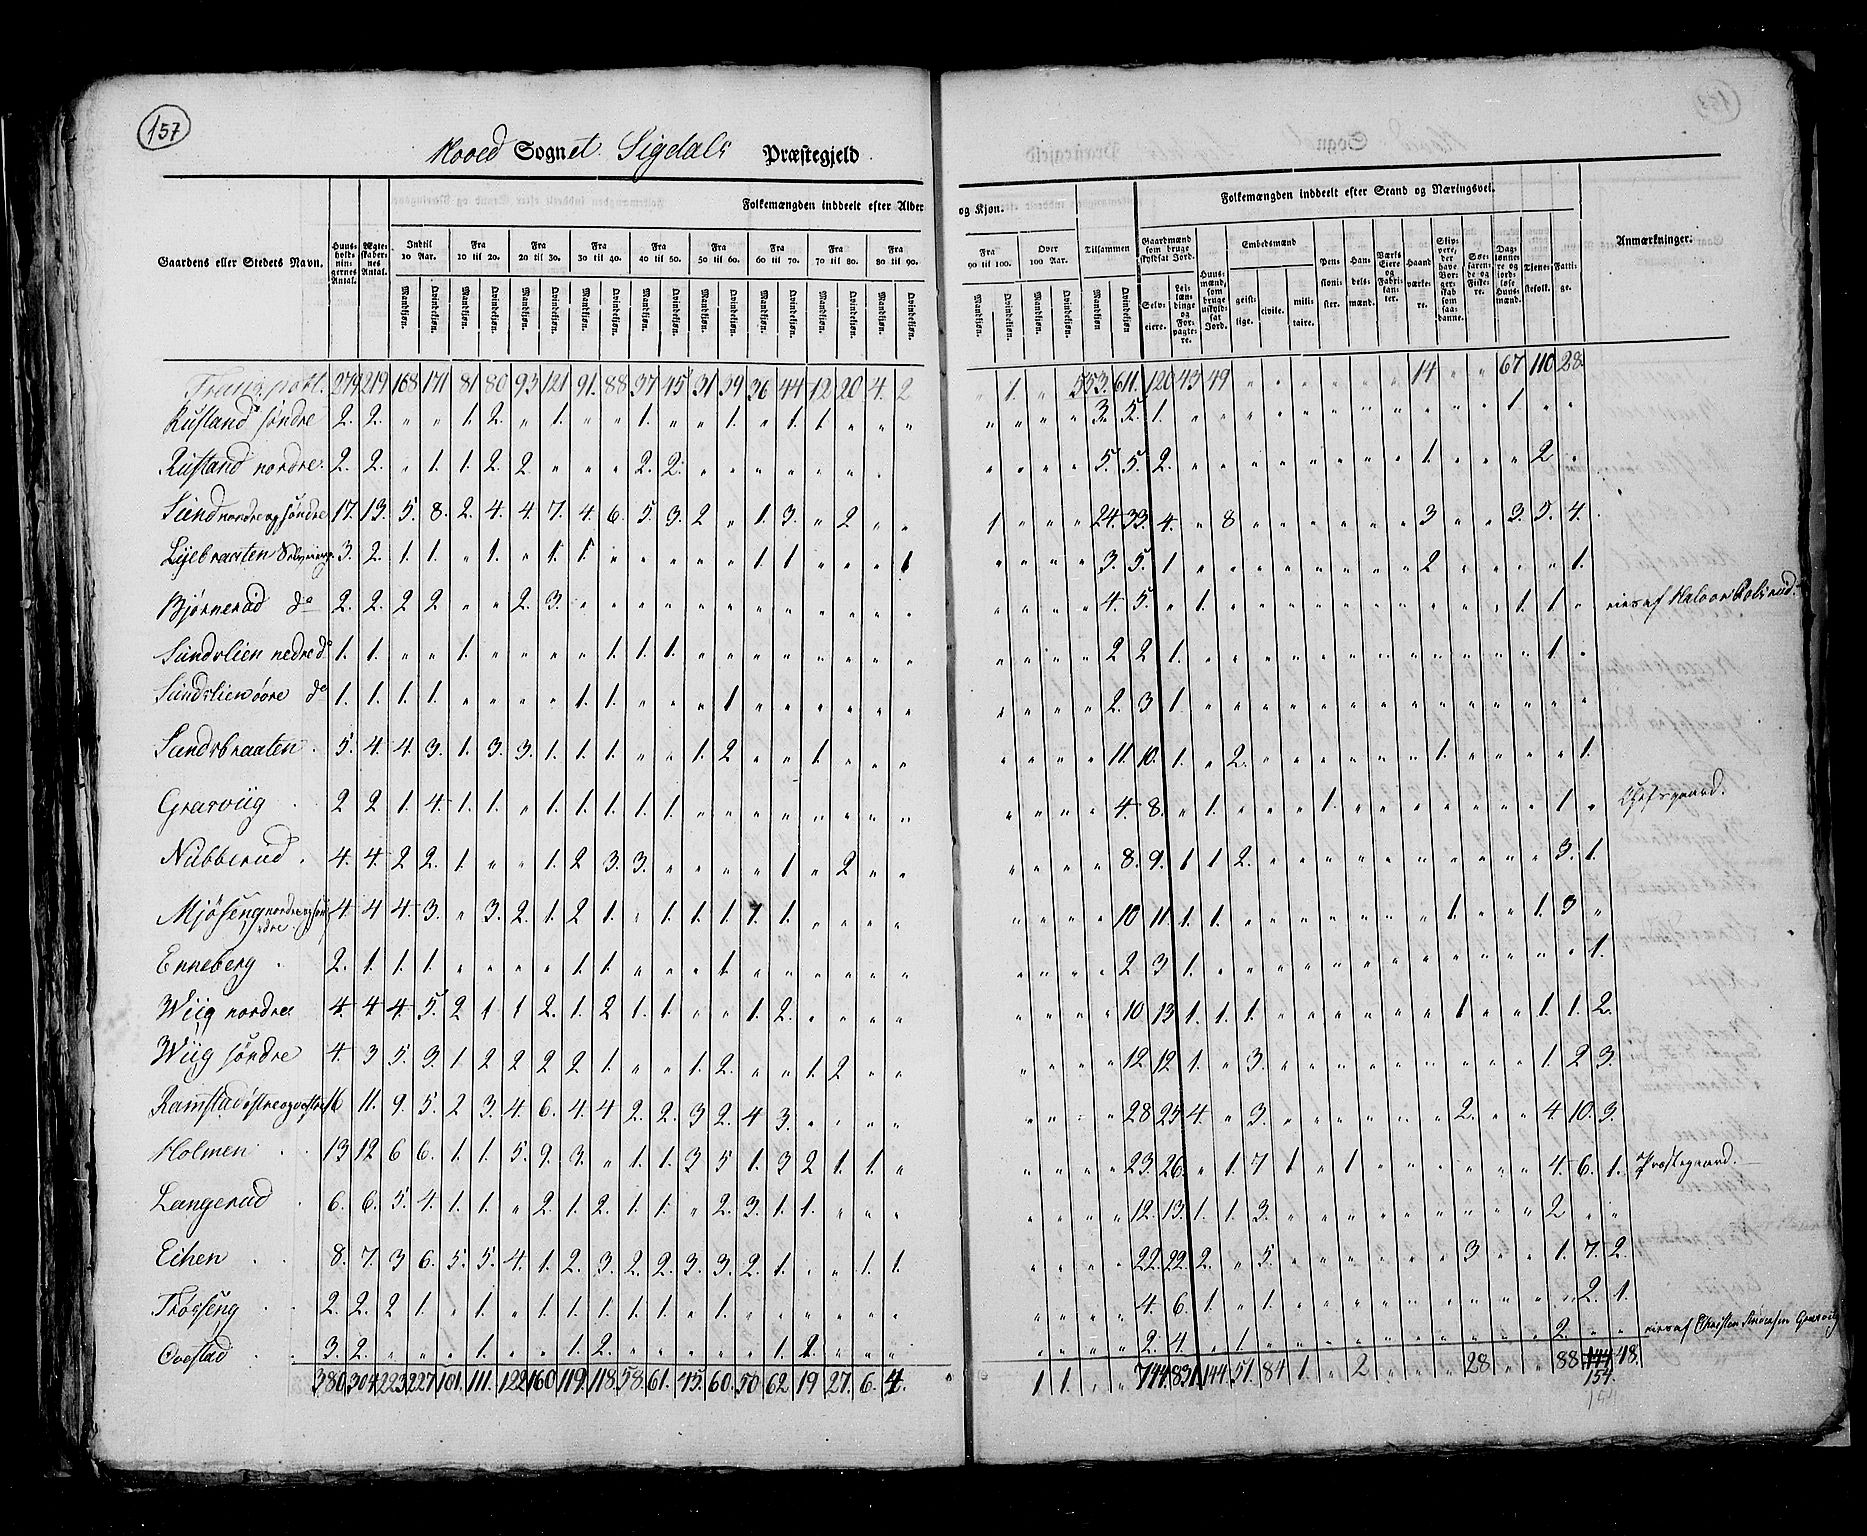 157
Hoved Sognet. Sigdals Præstegjeld.
Folkemængden inddeelt efter Alder og Kjøn. Folkemængden inddeelt efter Stand og Næringsvei.
Gaardens eller Stedets Navn. Huus-holdnin-gernes Antal. Ægte-skaber-nes Antal. Indtil 10 Aar. Fra 10 til 20. Fra 20 til 30. Fra 30 til 40. Fra 40 til 50. Fra 50 til 60. Fra 60 til 70. Fra 70 til 80. Fra 80 til 90. Fra 90 til 100. Over 100 Aar. Tilsammen
Mandkjøn. Qvindekjøn.
Gaardmænd som bruge skyldsat Jord. Selv-eiere. Lei-læn-dinge og For-pagte-re. Huus-mænd, som bruge uskyld-sat Jord. Embedsmænd geist-lige. civile. mili-taire. Pen-sioni-ster. Han-dels-mænd. Værks Eiere og Fabri-kan-ter. Haand-værke-re. Søe-faren-de og Fiske-re. Dag-lønne-re og jord-løse Huus-mænd. Tjene-stefolk. Fatti-ge. Anmærkninger.
Transport. 379 219 168 171 81 80 93 121 91 88 37 45 31 39 36 44 12 20 4. 2 " 1. " " 553. 611. 120 43 49 " " " " " " 14 " " 67 110 28
Rustand søndre 2. 2. " " 1. 2. " 1. " " 1. " " 1. " 1. 1. " " " " " " " 3. 5. 1. " " " " " " " " " " " 1. " "
Rustand nordre. 2. 2. " 1. 1. 2. 2. " " " 2. 2. " " " " " " " " " " " " 5. 5. 2. " " " " " " " " 1. " " " 2. "
Sund nordre og søndre 17. 13. 5. 8. 2. 4. 4. 7. 4. 6. 5. 3. 2 " 1. 3. " 2 " " 1 " " " 24. 33. 4. " 8 " " " " " " 3 " " 3. 5. 4.
3. 2. 1. 1. " 1. " 1. 1. " " " " " 1. 1. " " " 1 " " " " 3. 5. 1 " " " " " " " " 2 " " " " 1.
Bjørnerud do 2. 2. 2 2. " " 2. 3. " " " " " " " " " " " " " " " " 4. 5. " 1. " " " " " " " " " " 1. 1. "
Sundslien nedre do 1. 1. " " 1. " " " " 1. 1. 1. " " " " " " " " " " " " 2 2 1. " " " " " " " " " " " " 1. "
Sundslien øvre do 1. 1. 1. 1. " " " " 1. 1. " " " 1 " " " " " " " " " " 2. 3 1. " " " " " " " " " " " " " "
Sundsbraaten. 5. 4. 4. 3. 1. 3. 3. 1. 1. 1. " " 1. 2 " " 1. " " " " " " " 11. 10. 1. " 2. " " " " " " 1. " " " " 1.
Grasviig. 2 2 1. 4. 1. 1. " 1. 1. 1. 1. 1. " " " " " " " " " " " " 4. 8. " 1. " " " 1. " " " " " " " 1. "
Nubberud. 4. 4. 2 2. 1 " " 1. 2 3. 3. " " " " 1 " 2 " " " " " " 8. 9. 1 1 2. " " " " " " " " " " 3. 1.
Mjøseng nordre og søndre 4. 4 4. 3. " 3. 2. 1. 2 1. " 1. 1. 1 1. 1. " " " " " " " " 10 11. 1. 1. " " " " " " " 1. " " 1. 3 "
Enneberg. 2. 1. 1. 1. " " " " 1. 1. " " " 1. " " " " " " " " " " 2 3 1. " " " " " " " " " " " " " 1.
Wiig nordre 4. 4 4. 5. 2 1 1 2. 1. 2 1. 1. " " 1. 2. " " " " " " " " 10. 13 1. 1. 1. " " " " " " 1 " " 1. 1. 2.
Wiig søndre 4. 3 5. 3. 1. 2 2 2 2 1. " " 1. 2. " " 1. 2 " " " " " " 12. 12 1. " 3. " " " " " " " " " 1. 2 3.
Ramstad østre og vestre 16 11. 9. 5. 2 3. 4. 6. 4. 4 2. 2. 3 2. 4 3. " " " " " " " " 28 25 4. " 3. " " " " " " 2. " " 4. 10. 3.
Holmen 13 12 6 6. 1. 1. 5. 9. 3. " 1. 1. 3 5 1. 3 2 1. 1. " " " " " 23. 26. " 1. 7 1 " 1. " " " " " " 4. 6. 1. Præstegaard.
Langerud. 6. 6. 5. 4. 1. 1. " 2. 1. 2. 1. 1. " 2. 3. 1. 1. " " " " " " " 12. 13. 1. 1. 3. " " " " " " " " " 2 " "
Eihen 8. 7. 3 6. 5. 5. 4. 1. 2. 3. 2. 2. 3. 3. 2. 1. " " 1. 1. " " " " 22. 22. 2. " 5. " " " " " " 3 " " 1. 7. 2.
2. 2. 2 1. " 1. " 1. 1. 1. 1. 1. " 1. " " " " " " " " " " 4. 6. 1. " 1. " " " " " " " " " " 2. 1.
3. 2. " " " 1. " " 1. 2. " " " " " 1. 1. " " " " " " " 2. 4. " 1. " " " " " " " " " " 2. " "
380. 304 223 227 101. 111. 122 160 119. 118. 58. 61. 45. 60. 50 62 19 27. 6. 4. 1 1. " " 744 831. 144 51. 84 1. " 2 " " " 28 " " 88 144 48.
154.
154